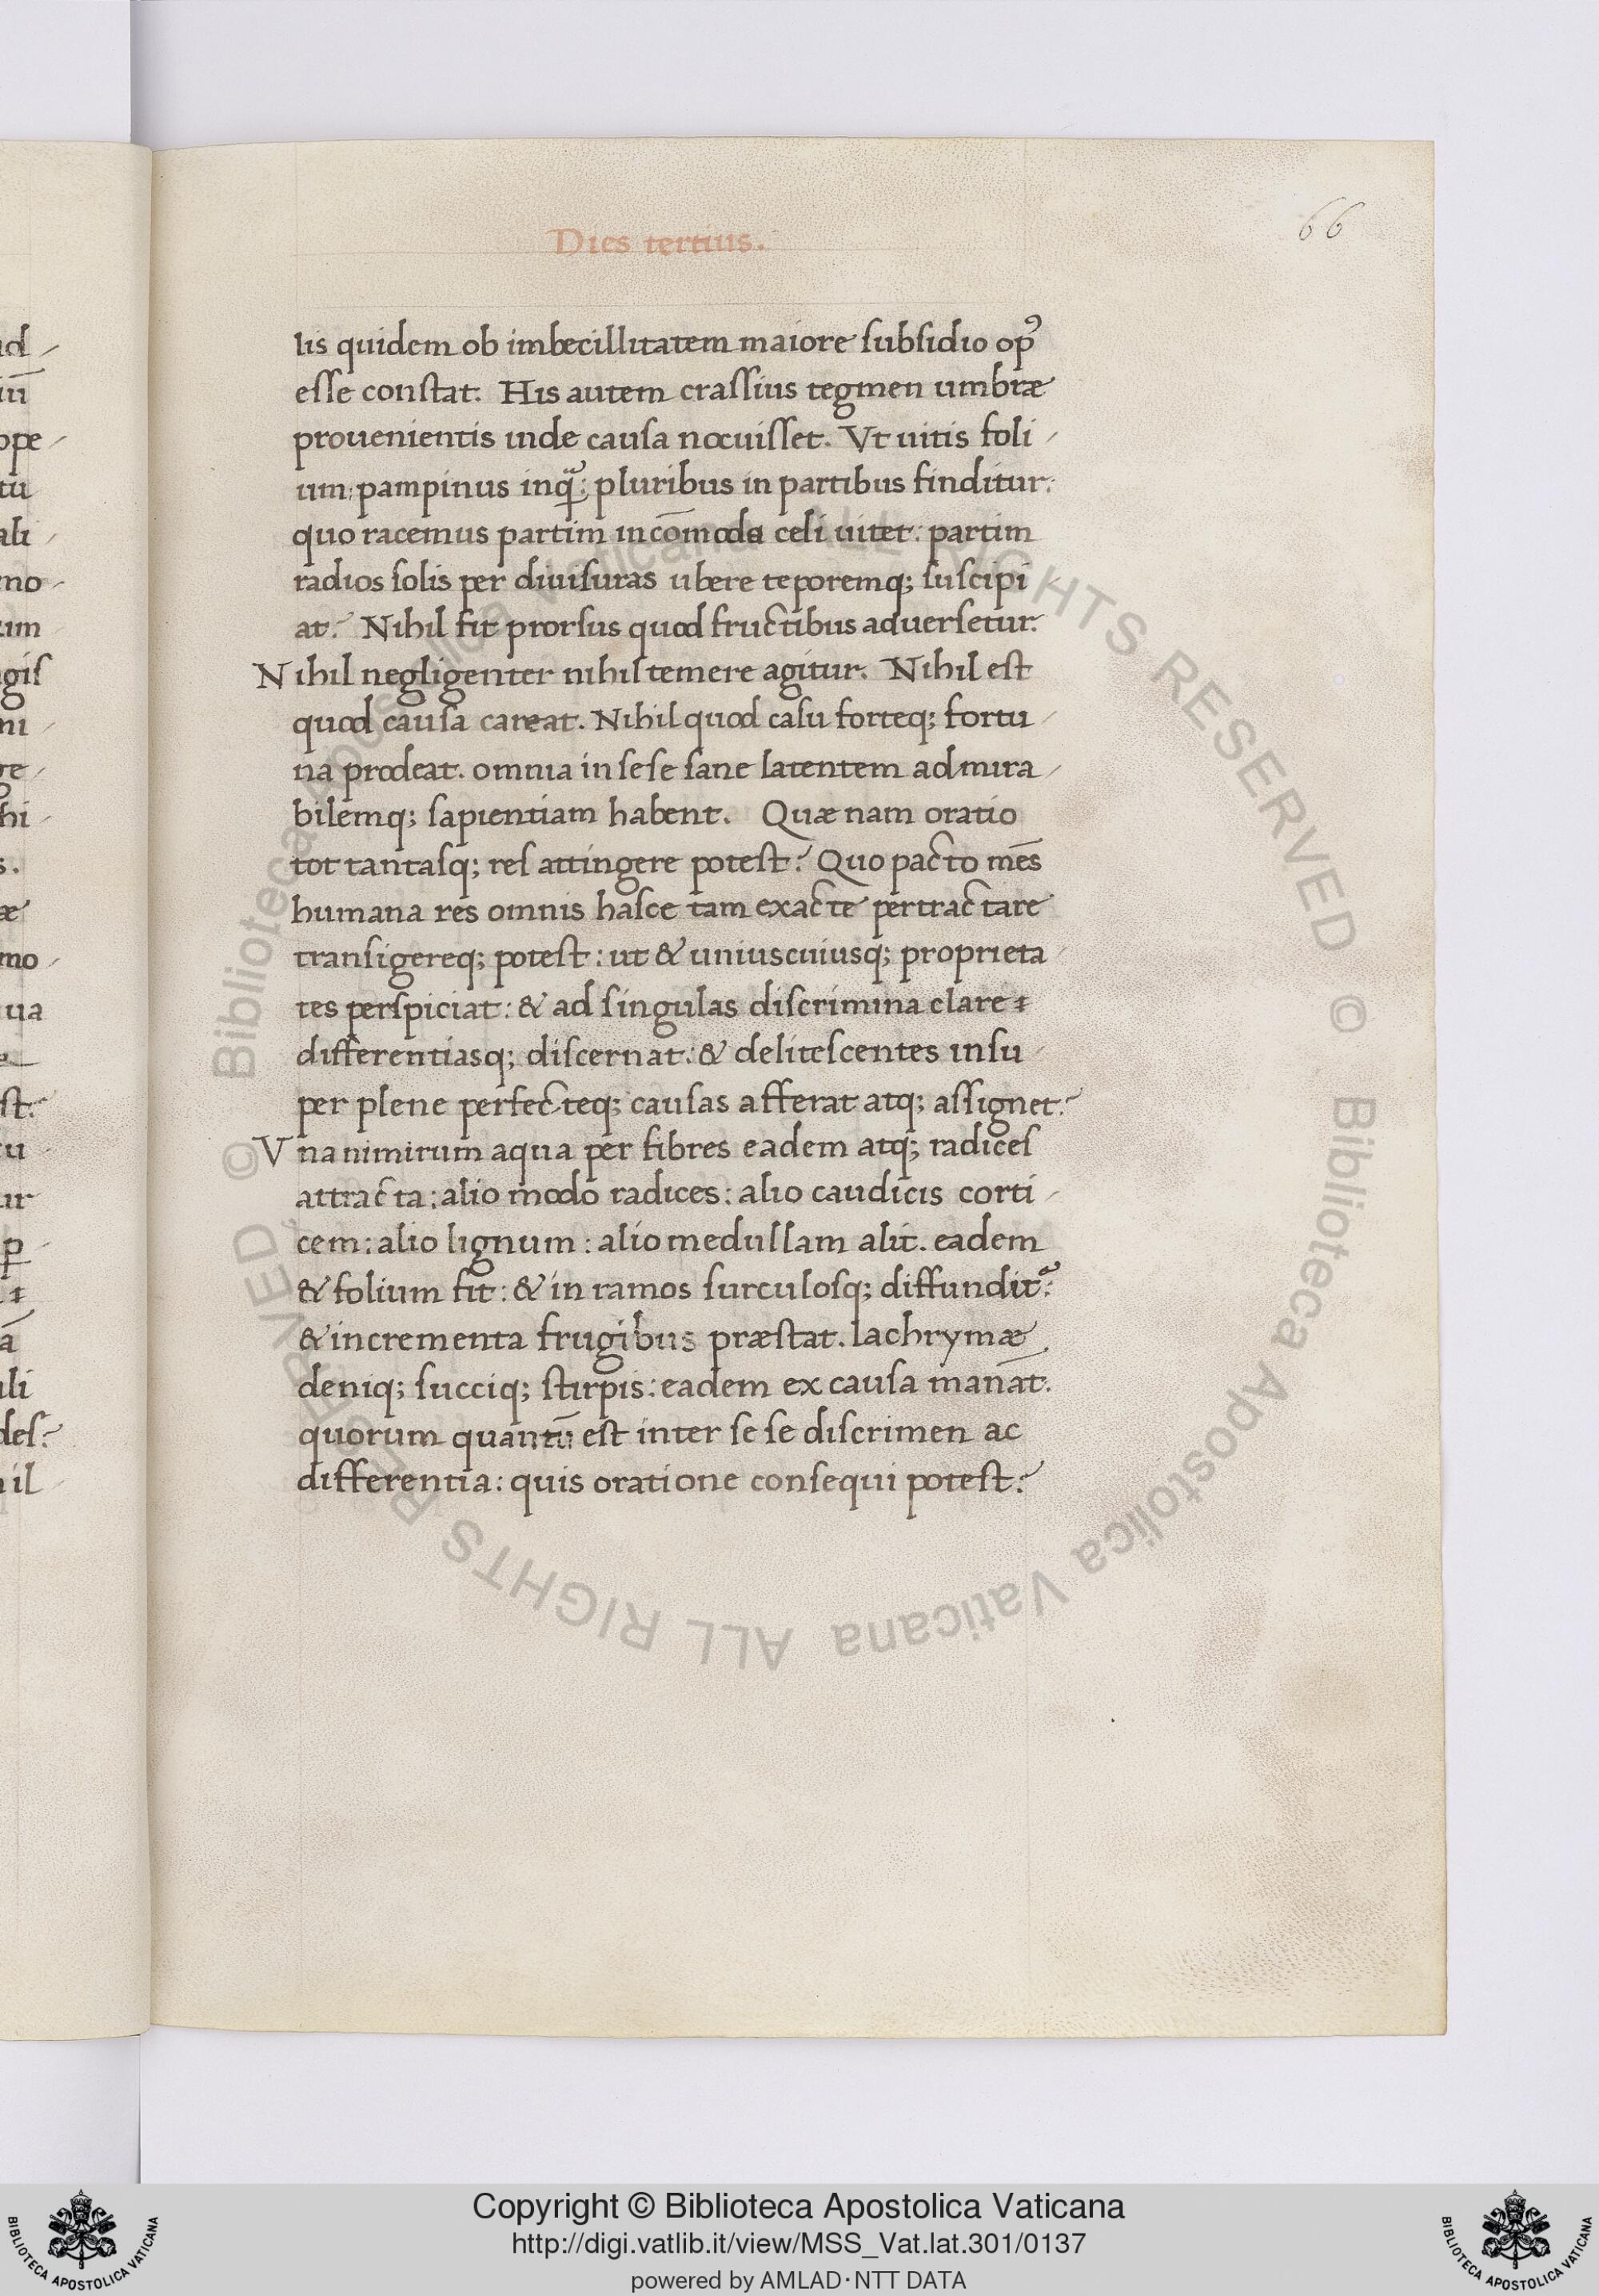 Dies tertius.
66
lis quidem ob imbecillitatem maiore subsidio opꝰ
esse constat. His autem crassius tegmen umbræ
prouenientis inde causa nocuisset. Vt uitis foli-
um; pampinus inquā: pluribus in partibus finditur:
quo racemus partim incōmoda celi uitet: partim
radios solis per diuisuras ubere teporemq; suscipi-
at. Nihil fit prorsus quod fructibus aduersetur.
Nihil negligenter nihil temere agitur. Nihil est
quod causa careat. Nihil quod casu forteq; fortu-
na prodeat. omnia in sese sane latentem admira-
bilemq; sapientiam habent. Quæ nam oratio
tot tantasq; res attingere potest? Quo pacto mēs
humana res omnis hasce tam exacte pertractare
transigereq; potest: ut & uniuscuiusq; proprieta-
tes perspiciat: & ad singulas discrimina clare
differentiasq; discernat: & delitescentes insu-
per plene perfecteq; causas afferat atq; assignet?
Vna nimirum aqua per fibres eadem atq; radices
attracta: alio modo radices: alio caudicis corti-
cem: alio lignum: alio medullam alit. eadem
& folium fit: & in ramos surculosq; diffundit᷑:
& incrementa frugibus præstat. lachrymæ
deniq; succiq; stirpis: eadem ex causa manāt.
quorum quantū est inter se se discrimen ac
differentia: quis oratione consequi potest?
© Biblioteca Apostolica Vaticana ALL RIGHTS RESERVED © Biblioteca Apostolica Vaticana ALL RIGHTS RESERVED
Copyright © Biblioteca Apostolica Vaticana
http://digi.vatlib.it/view/MSS_Vat.lat.301/0137
powered by AMLAD·NTT DATA
BIBLIOTECA APOSTOLICA VATICANA
BIBLIOTECA APOSTOLICA VATICANA